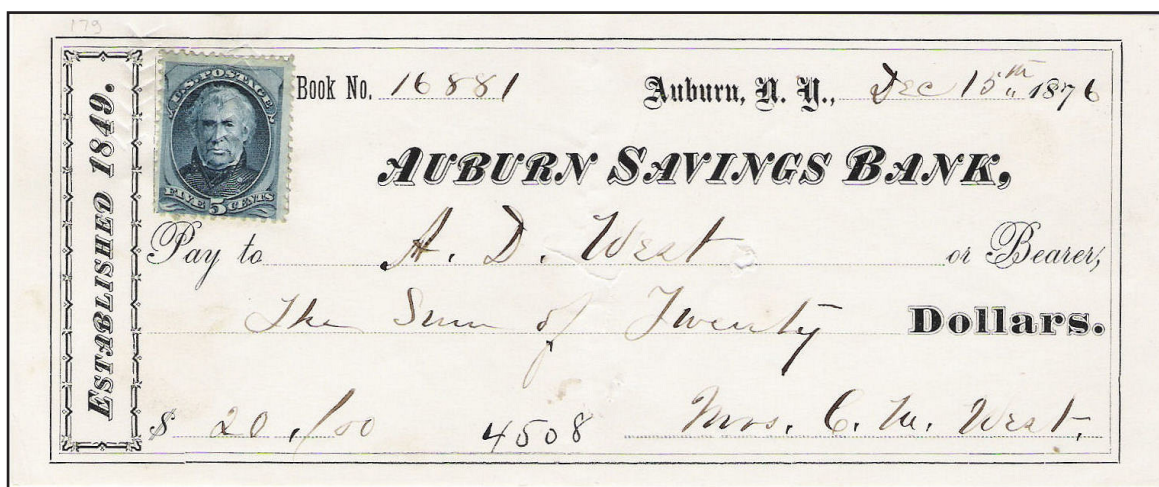 179
ESTABLISHED 1849.
U.S. POSTAGE
FIVE 5 CENTS
Book No. 16881 Auburn, N. Y., Dec 15th 1876
AUBURN SAVINGS BANK,
Pay to A. D. West or Bearer,
The Sum of Twenty Dollars.
$ 20./00 4508 Mrs. C. M. West.